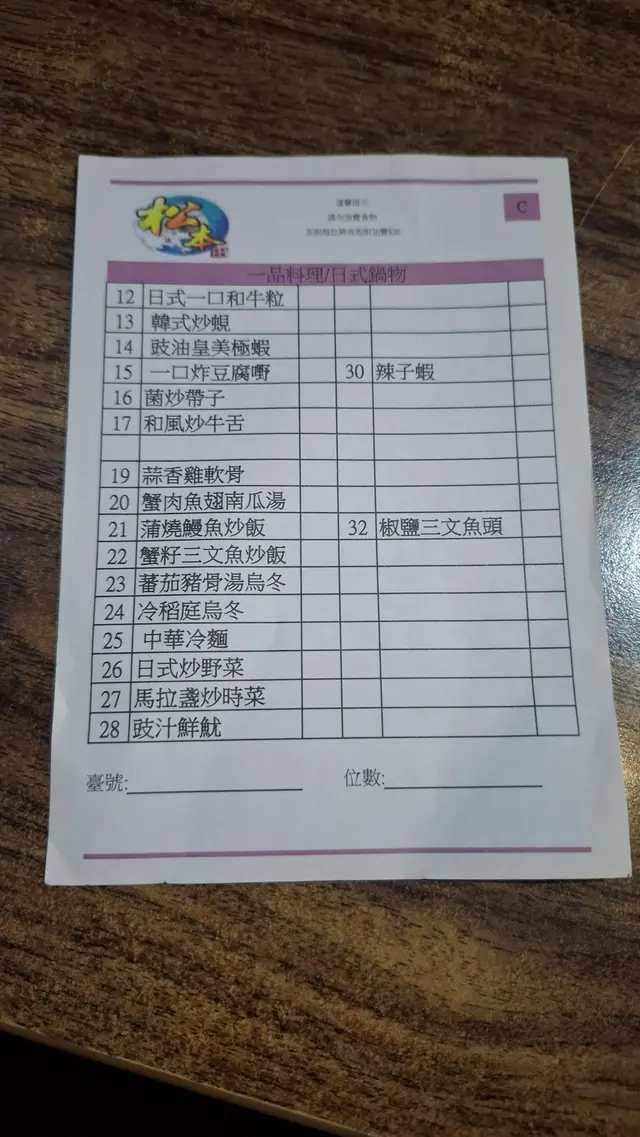 松本
溫馨提示
請勿浪費食物
C
一品料理/日式鍋物
12 日式一口和牛粒
13 韓式炒蜆
14 豉油皇美極蝦
15 一口炸豆腐嘢 30 辣子蝦
16 菌炒帶子
17 和風炒牛舌
19 蒜香雞軟骨
20 蟹肉魚翅南瓜湯
21 蒲燒鰻魚炒飯 32 椒鹽三文魚頭
22 蟹籽三文魚炒飯
23 蕃茄豬骨湯烏冬
24 冷稻庭烏冬
25 中華冷麵
26 日式炒野菜
27 馬拉盞炒時菜
28 豉汁鮮魷
臺號: 位數: